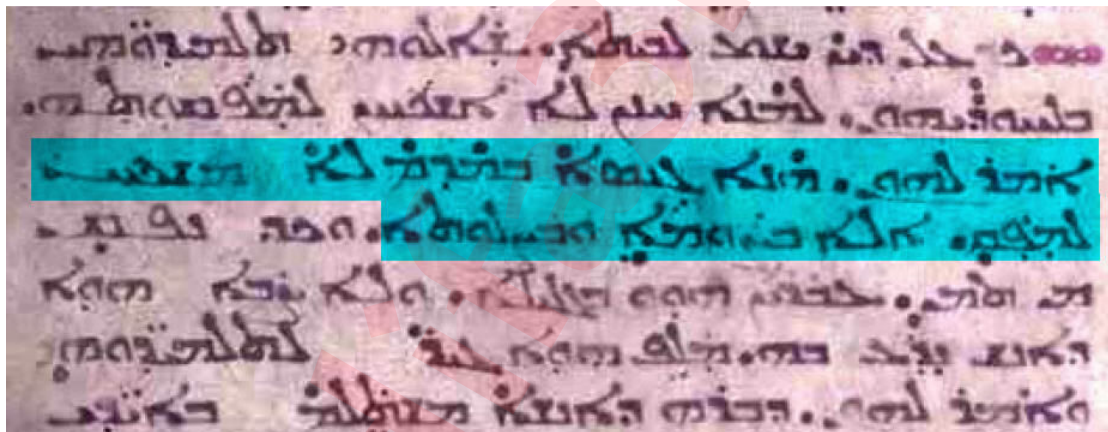 ܟܕ ܥܠ ܕܝܢ ܝܫܘܥ ܠܒܝܬܐ. ܫܐܠܘܗܝ ܬܠܡܝܕܘܗܝ
ܒܠܚܘܕܘܗܝ. ܠܡܢܐ ܚܢܢ ܠܐ ܐܫܟܚܢ ܠܡܦܩܘܬܗ.
ܐܡܪ ܠܗܘܢ. ܗܢܐ ܓܢܣܐ ܒܡܕܡ ܠܐ ܡܫܟܚ
ܠܡܦܩ. ܐܠܐ ܒܨܘܡܐ ܘܒܨܠܘܬܐ. ܘܟܕ ܢܦܩ ܝܫܘܥ
ܡܢ ܬܡܢ. ܥܒܪܝܢ ܗܘܘ ܒܓܠܝܠܐ. ܘܠܐ ܨܒܐ ܗܘܐ
ܕܐܢܫ ܢܕܥ ܒܗ. ܡܠܦ ܗܘܐ ܓܝܪ ܠܬܠܡܝܕܘܗܝ
ܘܐܡܪ ܠܗܘܢ. ܕܒܪܗ ܕܐܢܫܐ ܡܫܬܠܡ ܒܐܝܕܝ